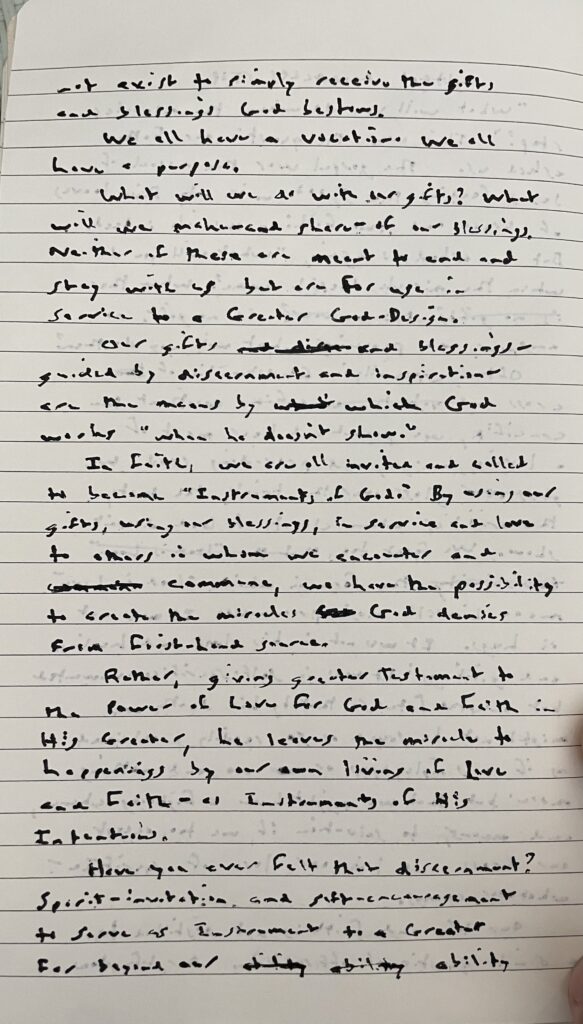 not exist to simply receive the gifts
and blessings God bestows.
We all have a vocation. We all
have a purpose.
What will we do with our gifts? What
will we make-and share-of our blessings.
Neither of these are meant to end and
stay with us but are for use in
service to a Greater God-Design.
Our gifts and blessings-
guided by discernment and inspiration-
are the means by which God
works "when he doesn't show."
In Faith, we are all invited and called
to become "Instruments of God." By using our
gifts, using our blessings, in service and love
to others in whom we encounter and
commune, we have the possibility
to create the miracles God denies
from first-hand source.
Rather, giving greater Testament to
the Power of Love for God and Faith in
His Greater, he leaves the miracle to
happenings by our own living of Love
and Faith - as Instruments of His
Intention.
Have you ever felt that discernment?
Spirit-invitation and self-encouragement
to serve as Instrument to a Greater
Far beyond our ability